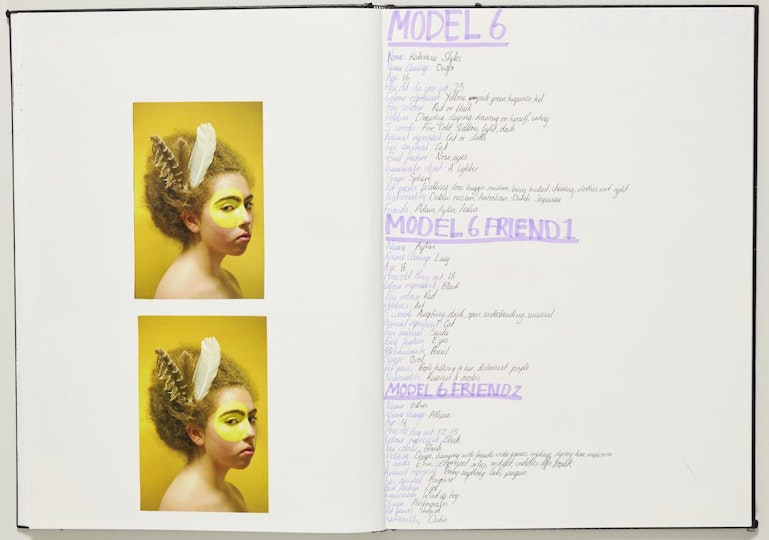 MODEL 6
Name Katerina Styles
Name Change Onyx
Age 16
How old do you act 25
Colour represent Yellow, green, turquoise, red
Fav colour Red or black
Hobbies Drawing, sleeping, drawing on myself, eating
5 words Fire, Cold, Shadow, light, dark
Animal represent Cat or sloth
Fav animal Cat
Best feature Nose, eyes
Inanimate object A lighter
Shape Sphere
Pet peeves Walking slow, huggin random, being touched, chewing, clothes not right
Nationality Dublin, russian, Australian, Dutch, Japanese
Friends Adam, Aylin,
MODEL 6 FRIEND 1
Name Aylin
Name Change Lucy
Age 16
How old they act 18
Colour represent Black
Fav colour Red
Hobbies Art
5 words Accepting, dark, open, understanding, unusual
Animal represent Cat
Fav animal Snake
Best feature Eyes
Inanimate Pencil
Shape Oval
Pet peeves People talking to her, dishonest people
Nationality Russian &
MODEL 6 FRIEND 2
Name
Name Change
Age 16
How old they act 12-15
Colour represent Black
Fav colour Black
Hobbies Drugs, hanging with friends, video games,
5 words
Animal represent
Fav animal Penguin
Best feature Eyes
Inanimate Wind up toy
Shape Pentagon
Pet peeves
Nationality Dublin